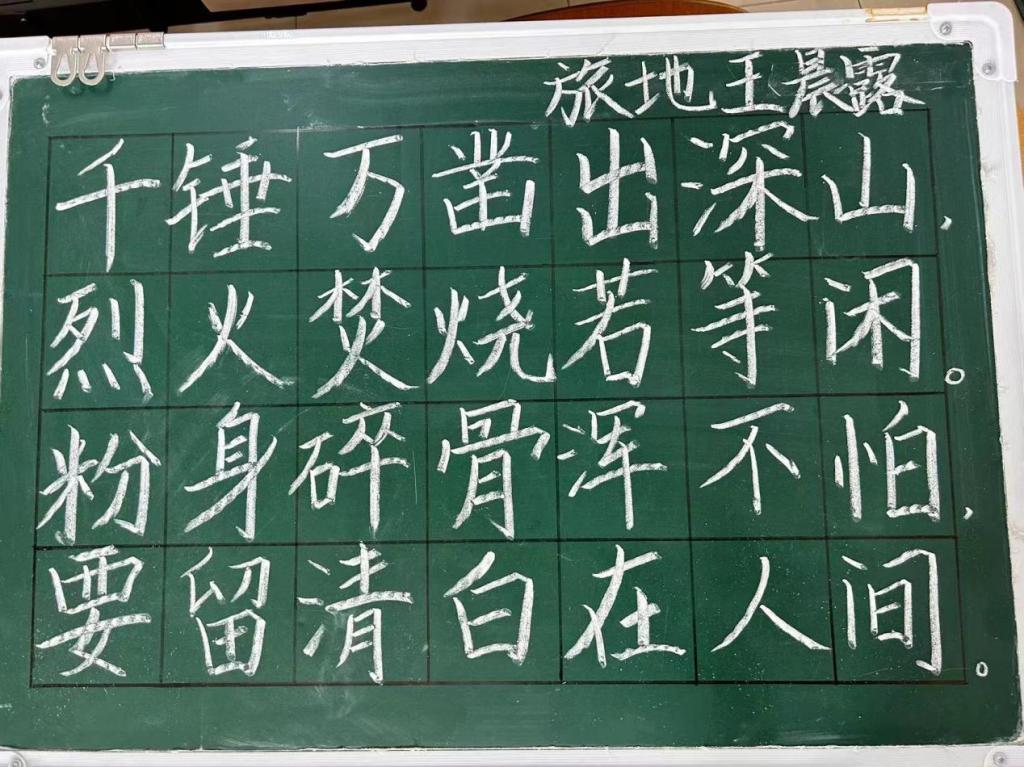 旅地王晨露
千锤万凿出深山,
烈火焚烧若等闲。
粉身碎骨浑不怕,
要留清白在人间。